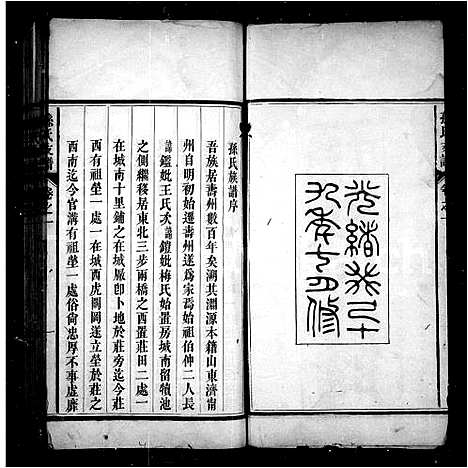 光緒歲己十
九年七四修
孫氏族譜序
吾族居壽州數百年矣溯其淵源本籍山東濟甯
州自明初始遷壽州遂以為家焉始祖伯仲二人長
諱鑑妣王氏次諱鎧妣梅氏始置房城南留犢池
之側繼移居東北三步兩橋之西置莊田二處一
在城南十里鋪之在城廠即卜地於莊旁迄今莊
西有祖塋一處一在城西虎關岡遂立塋於莊之
西南迄今官溝有祖塋一處俗尚忠厚不事虛靡
孫氏支譜
卷之一